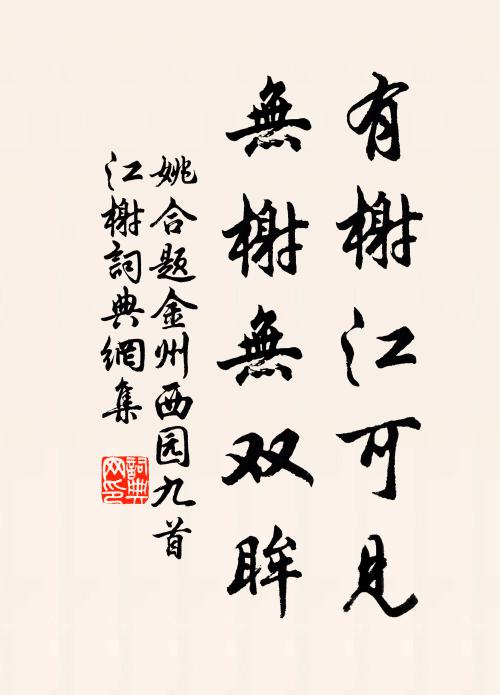 有榭江可見
無榭無双眸
姚合题金州西园九首
江榭詞典網集
詞典
网印